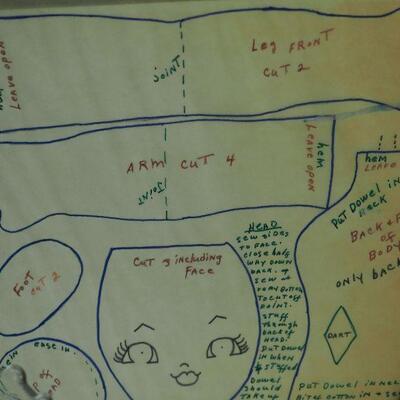 hem
LEAVE OPEN
JOINT
LEG FRONT
CUT 2
ARM CUT 4
JOINT
hem
LEAVE OPEN
hem
LEAVE
PUT DOWEL IN
BACK &
OF
BODY
ONLY BACK
DART
FOOT
CUT 2
CUT 3 INCLUDING
FACE
HEAD
SEW SIDES
TO FACE.
CLOSE HALF
WAY DOWN
BACK. &
SEW
TO CUT OFF
POINT.
STUFF
THROUGH
BACK OF
HEAD.
PUT DOWEL
IN WHEN
STUFFED
DOWEL
SHOULD
TAKE UP
EASE IN.
PUT DOWEL IN